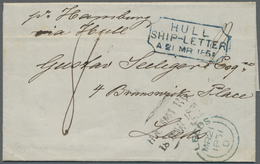 pr. Hamburg
via Hull
HULL
SHIP-LETTER
A 21 MR 186
Gustav Seelegard Esqre
4 Brunswick Place
Leeds
LEEDS